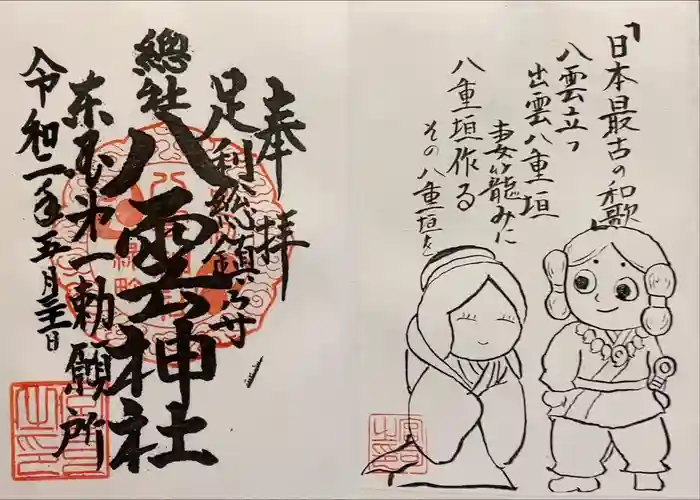 奉拝
足利総鎮守
總社
八雲神社
東国第一勅願所
令和二年五月三十一日
「日本最古の和歌」
八雲立つ
出雲八重垣
妻が籠みに
八重垣作る
その八重垣を